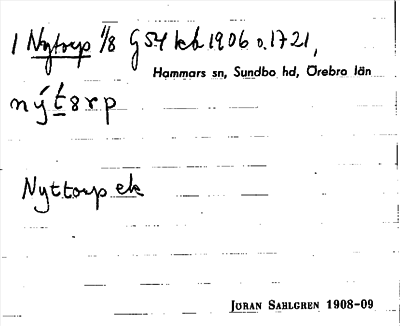 1 Nytorp 1/8 G54 kb 1906 o. 1721,
Hammars sn, Sundbo hd, Örebro län
nýt8rp
Nyttorp ek
JÖRAN SAHLGREN 1908-09